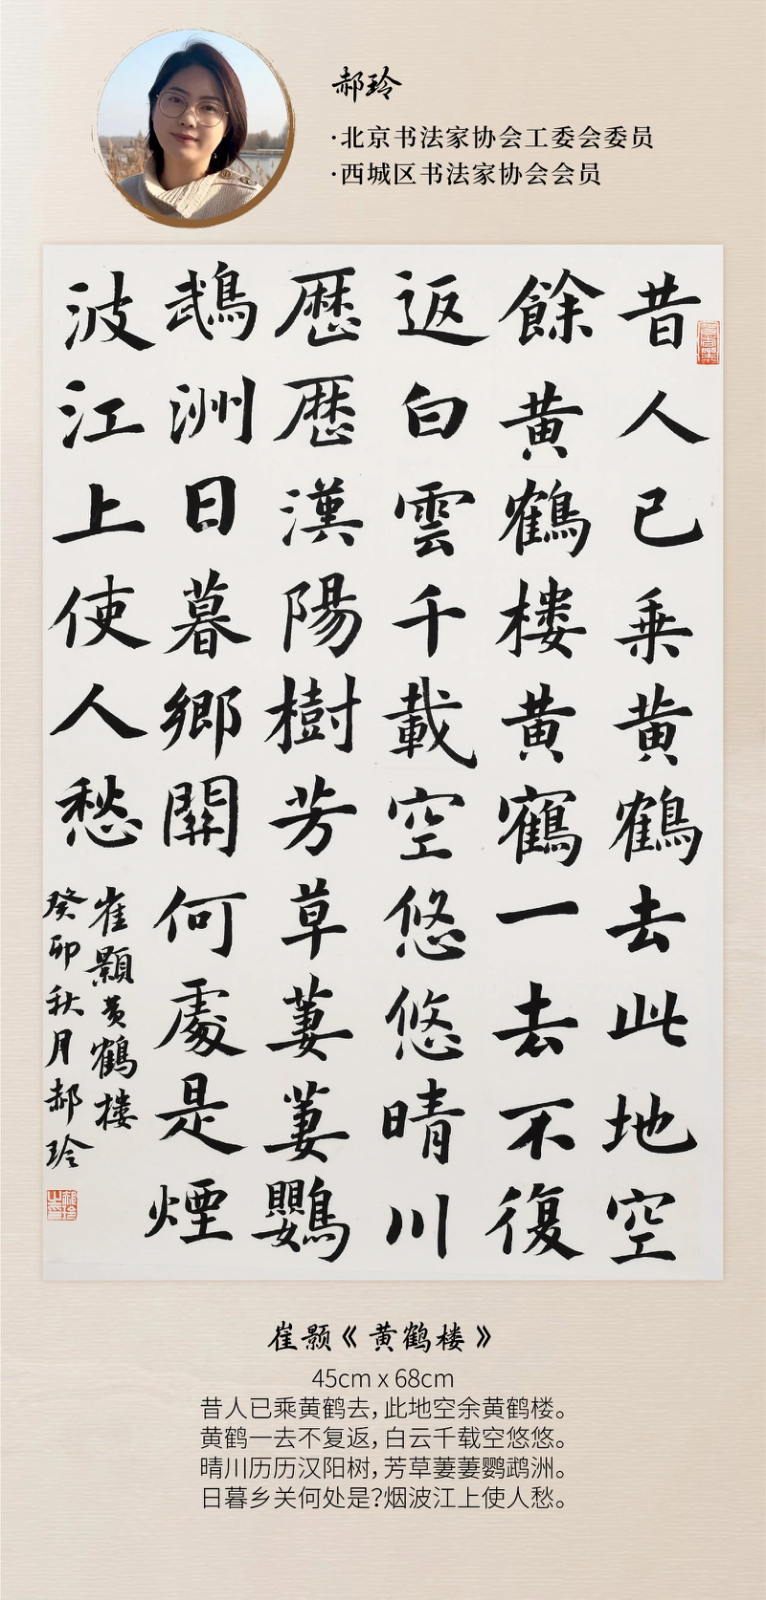 郝玲
·北京书法家协会工委会委员
·西城区书法家协会会员
昔人已乘黄鶴去此地空
餘黄鶴楼黄鶴一去不復
返白雲千載空悠悠晴川
歴歴漢陽樹芳草萋萋鸚
鵡洲日暮鄉關何處是煙
波江上使人愁
崔顥黄鶴楼
癸卯秋月郝玲
崔颢《黄鹤楼》
45cm x 68cm
昔人已乘黄鹤去，此地空余黄鹤楼。
黄鹤一去不复返，白云千载空悠悠。
晴川历历汉阳树，芳草萋萋鹦鹉洲。
日暮乡关何处是？烟波江上使人愁。